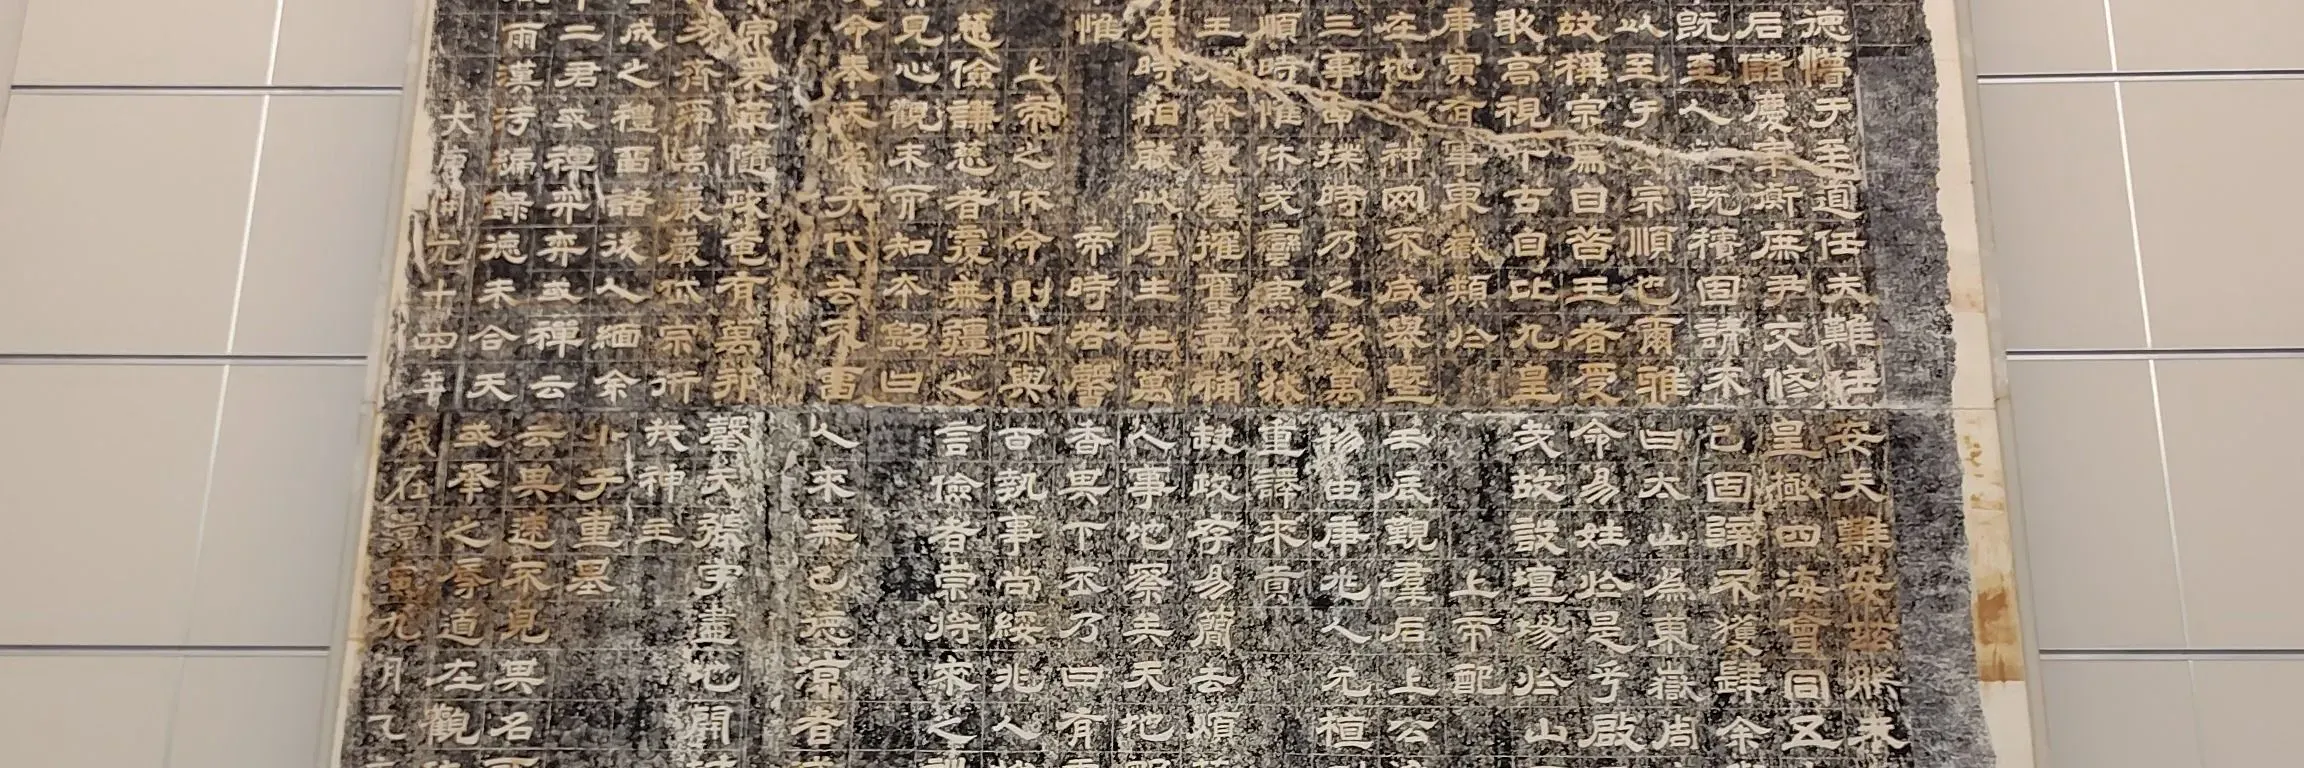 德懵于至道任夫難任安夫難安茲朕未
后儲慶宰衡庶尹交修皇極四海會同五
既至人既積固請不已固辭不獲肆余
以至于宗順也爾雅曰太山為東嶽周
故稱宗焉自昔王者受命易姓於是乎啟
敢高視千古自比九皇哉故設壇場於山
庚寅有事東嶽類於上帝配
在地神罔不咸舉暨壬辰覲羣后上公
三事百揆時乃之功萬物由庚兆人允植
順時惟休哉蠻夷戎狄重譯來貢
王齊象榷舊章補缺政存易簡去煩
后時相能以厚生生萬人事地察矣天地
惟帝時若馨香其下丕乃曰有
上帝之休命則亦與百執事尚綏兆人
慈儉謙慈者覆無疆之言儉者崇將來之訓
見心觀末而知本銘曰
命奉天為子代去不留人來無已德涼者
宗爰革隨政奄有萬邦罄天張宇盡地開封
易齊巖巖岱宗衛我神主
成之禮留諸後人緬余小子重基
二君或禪弈弈或禪云云其迹不見其名
雨漢污編錄德未合天或承之辱道在觀
大唐開元十四年歲在景寅九月乙